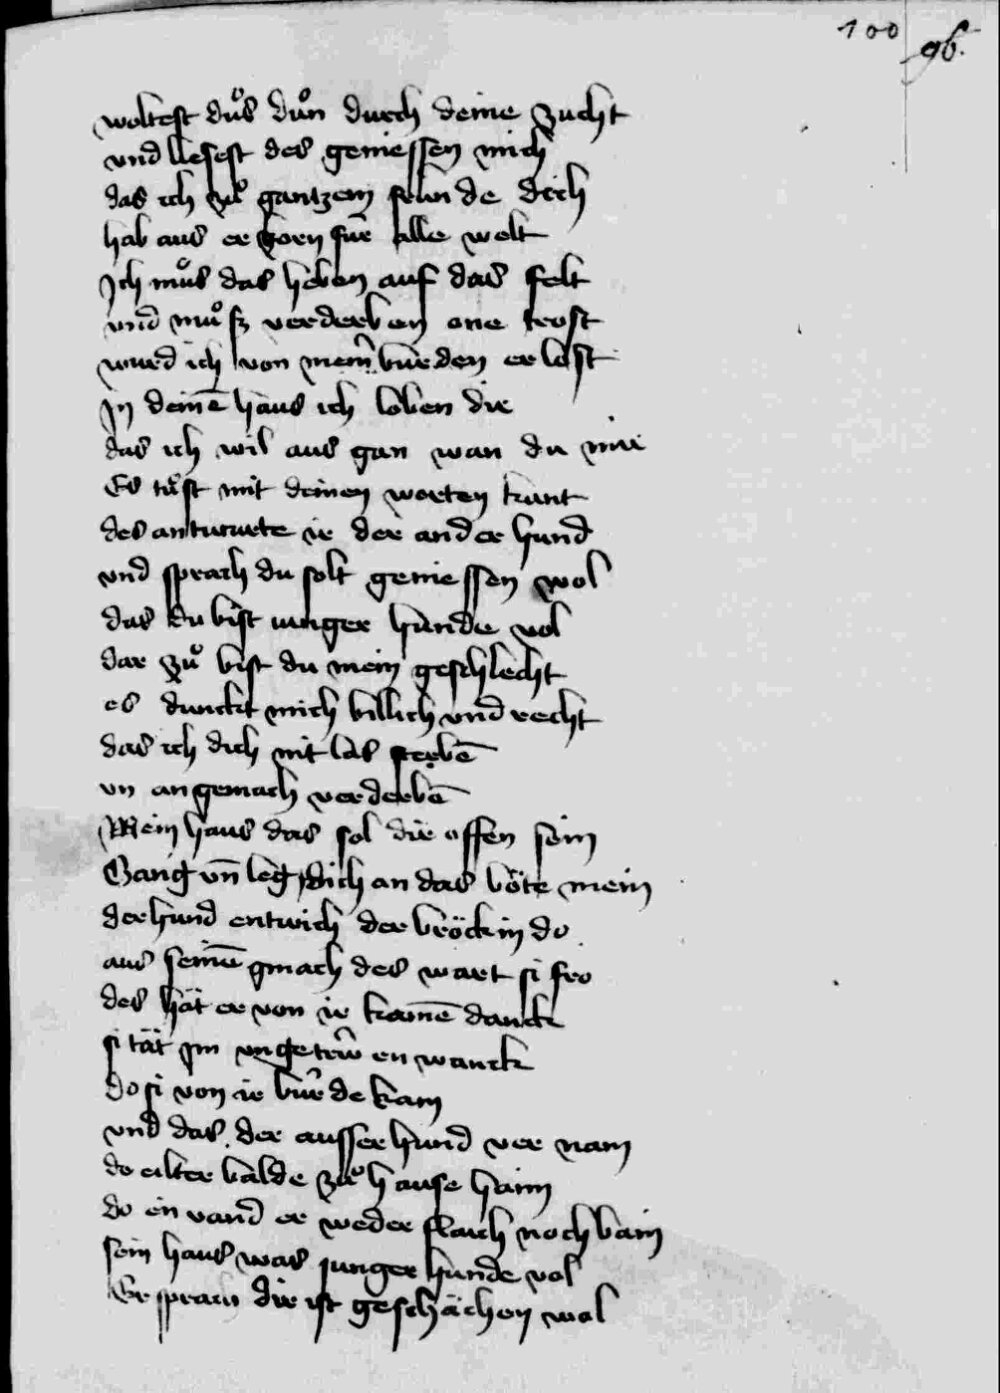 100 96.
woltest duͦs duͦn durch deine zucht
vnd liesest des geniessen mich
das ich zuͦ gantzem frün de dich
hab aus er korn für alle welt
Ich muͦs das heben auf das felt
vnd muͦsz verderben one trost
wurd ich von mein̄ bürden erlöst
In deinē haus ich loben dir
das ich wil aus gan wan du mir
Es tuͦst mit deinen worten kunt
des anturwrte ir der ander hund
vnd sprach du solt geniessen wol
das du bist iunger hunde vol
dar zuͦ bist du mein geschlecht
es dunckt mich billich vnd recht
das ich dich nit las sterbē
vn an gemach verderbē
Mein haus das sol dir offen sein
Gang vn̄ leg dich an das böte mein
der hund entwich der bröckin do
aus seinē gmach des wart si fro
des hät er von ir kamē danck
si tät im vngetrw̄ en wanck
do si von ir bürde kam
vnd das der ausser hund ver nam
do eilter balde zuͦ hause hain
do en vand er weder flaich noch bain
sein haus was junger hunde vol
Er sprach dir ist geschächen wol